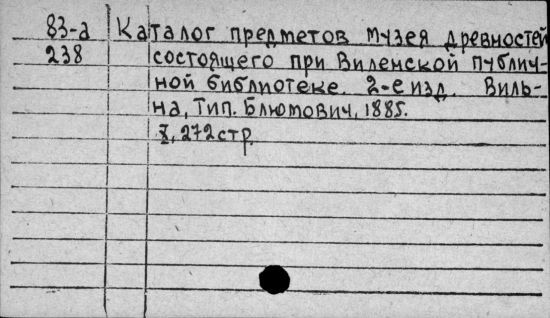 83-а Каталог предметов музея древностей
238 состоящего при Виленской публич-
ной библиотеке. 2-е изд. Виль-
на, Тип. Блюмович, 1885.
X, 272 стр.